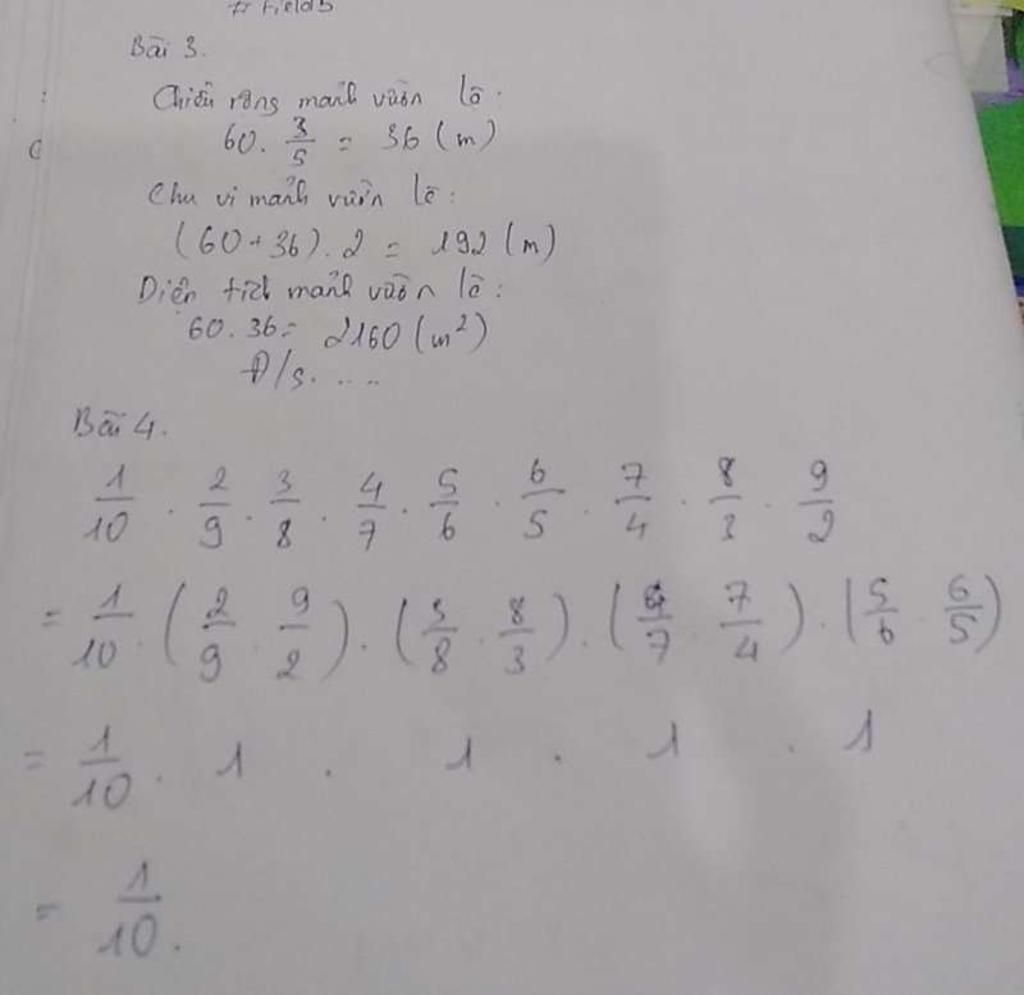 # Field5
Bài 3.
Chiều rộng mảnh vườn là:
60 . 3/5 = 36 (m)
Chu vi mảnh vườn là:
(60 + 36) . 2 = 192 (m)
Diện tích mảnh vườn là:
60 . 36 = 2160 (m²)
Đ/s. ....
Bài 4.
1/10 . 2/9 . 3/8 . 4/7 . 5/6 . 6/5 . 7/4 . 8/3 . 9/2
= 1/10 . (2/9 . 9/2) . (3/8 . 8/3) . (4/7 . 7/4) . (5/6 . 6/5)
= 1/10 . 1 . 1 . 1 . 1
= 1/10.